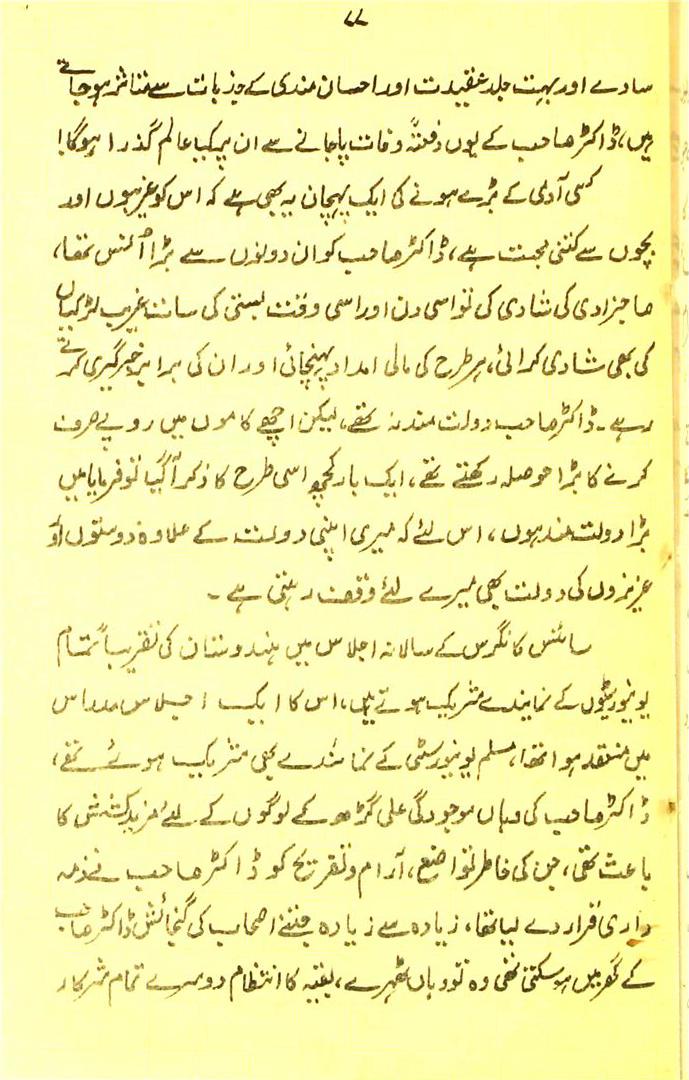 ۷۷
سادے اور بہت جلد عقیدت اور احسان مندی کے جذبات سے متاثر ہو جاتے
ہیں، ڈاکٹر صاحب کے یوں دفعتہً وفات پا جانے سے ان پر کیا عالم گذرا ہوگا!
کسی آدمی کے بڑے ہونے کی ایک پہچان یہ بھی ہے کہ اس کو غیروں اور
بچوں سے کتنی محبت ہے، ڈاکٹر صاحب کو ان دونوں سے بڑا اُنس تھا،
صاحبزادی کی شادی کی تو اسی دن اور اسی وقت بستی کی سات غریب لڑکیاں
کی بھی شادی کرائی، ہر طرح کی مالی امداد پہنچائی اور ان کی برابر خبر گیری کرتے
رہے۔ ڈاکٹر صاحب دولت مند نہ تھے، لیکن اچھے کاموں میں روپے صرف
کرنے کا بڑا حوصلہ رکھتے تھے، ایک بار کچھ اسی طرح کا ذکر آ گیا تو فرمایا میں
بڑا دولت مند ہوں، اس لئے کہ میری اپنی دولت کے علاوہ دوستوں اور
عزیزوں کی دولت بھی میرے لئے وقف رہتی ہے۔
سائنس کانگرس کے سالانہ اجلاس میں ہندوستان کی تقریباً تمام
یونیورسٹیوں کے نمایندے شریک ہوتے ہیں، اس کا ایک اجلاس مدراس
میں منعقد ہوا تھا، مسلم یونیورسٹی کے نمائندے بھی شریک ہوئے تھے،
ڈاکٹر صاحب کی وہاں موجودگی علی گڑھ کے لوگوں کے لئے مزید کشش کا
باعث تھی، جن کی خاطر تواضع، آرام و تفریح کو ڈاکٹر صاحب نے ذمہ
داری قرار دے لیا تھا، زیادہ سے زیادہ جتنے اصحاب کی گنجائش ڈاکٹر صاحب
کے گھر میں ہو سکتی تھی وہ تو وہاں ٹھہرے، بقیہ کا انتظام دوسرے تمام شرکار